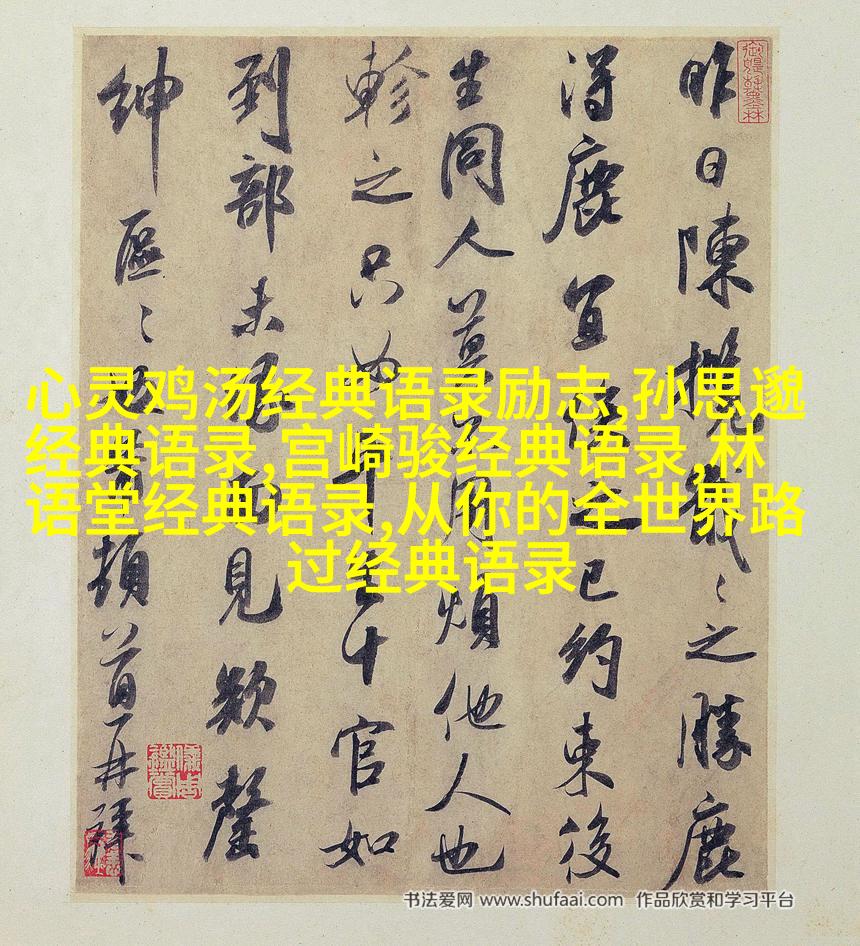 昨日陳攪戢戢之勝鹿
得鹿宜待之已約束後
生同人莫不用煩他人也
軫之只如平生十官如
到部未磨勘見欵罄
紳區々
頓首再拜
心灵鸡汤经典语录励志,孙思邈
经典语录,宫崎骏经典语录,林
语堂经典语录,从你的全世界路
过经典语录
书法爱网 www.shufaai.com 作品欣赏和学习平台